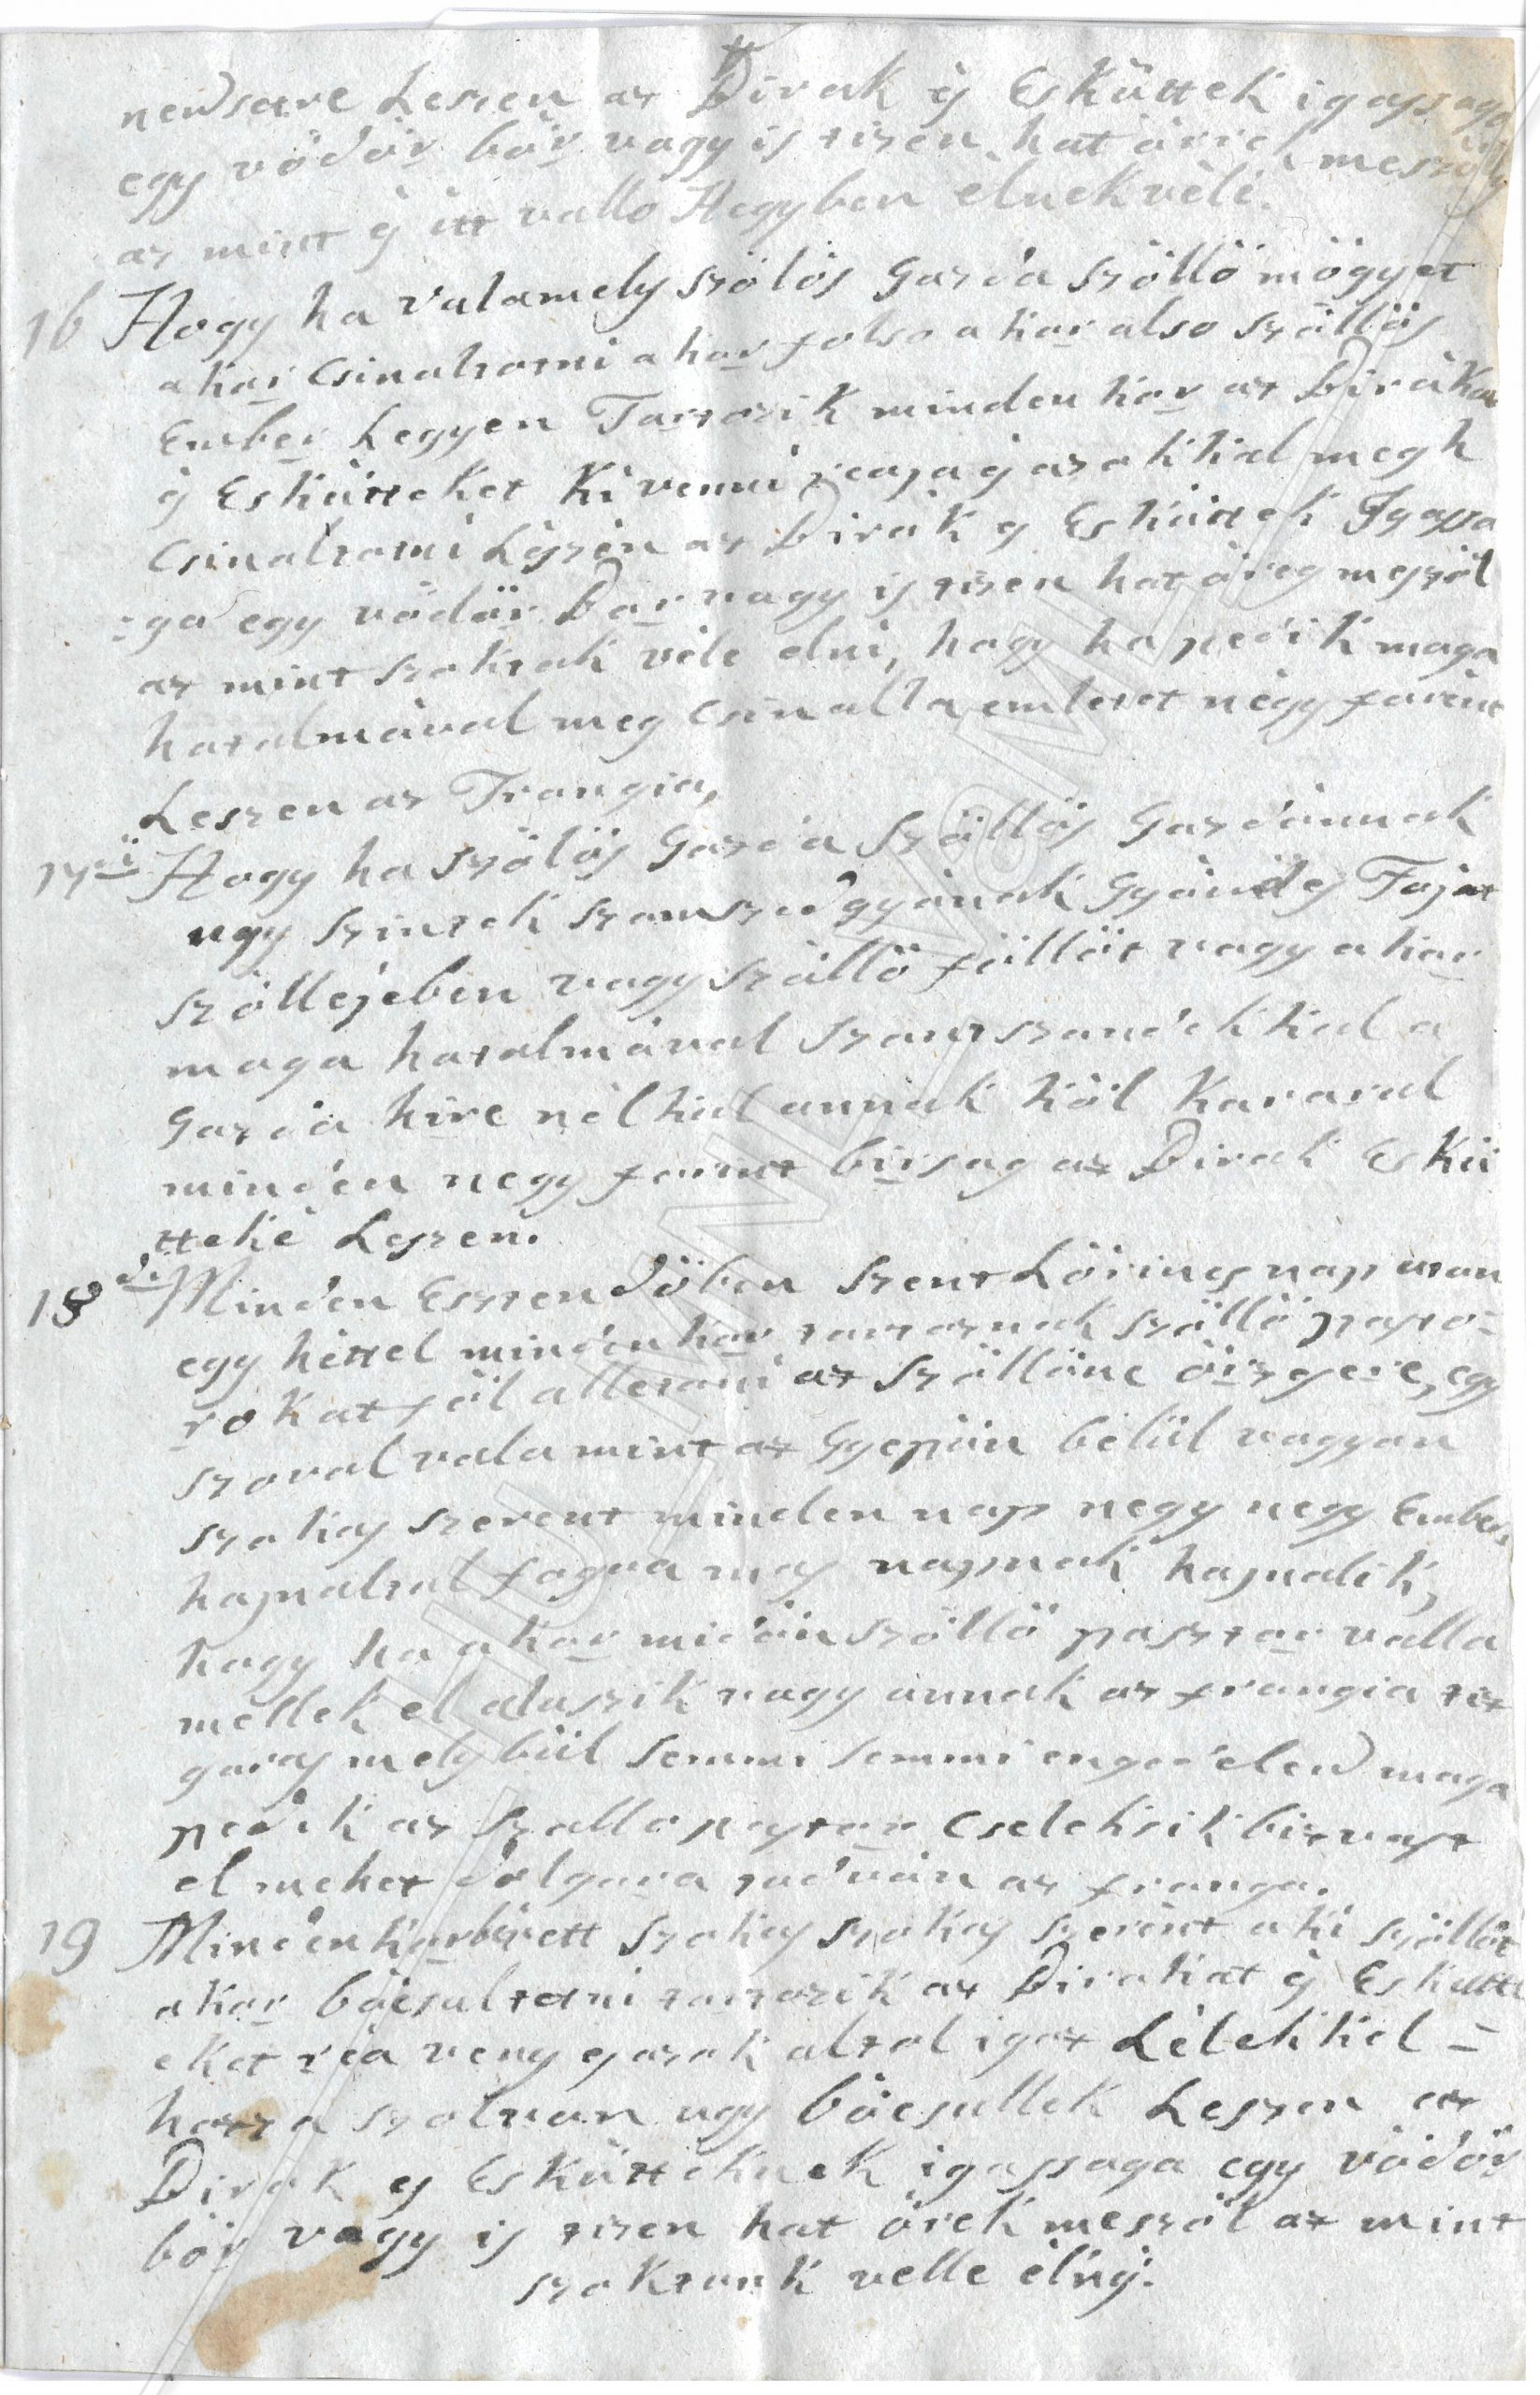 egy vödör bör vagy is tizen hat
az mint ÿ itt vallo Hegyben élnek véli.
16 Hogy ha valamely szölös Gazda szöllö mögyet
akar csinaltatni akar folso akar also szöllös
Ember Legyen Tartozik minden kor az Birakat
ÿ Eskütteket Ki venni reaja ÿ azokkal meg h
csinaltatni Lészen az Birak ÿ Esküttek Igassa
:ga egy vödör Bor vagy is tizen hat öreg meszöl
az mint szoktak véle elni, hogy ha pedik maga
hatalmával meg csinallta emletet négy forint
Leszen az Frangia,
17di Hogy ha szölös Gazda szöllös Gazdánnak
ugy szintek szomszedgyának Gyömölcs Fajat
szöllejében vagy szöllö föllöt vagy akar
maga hatalmával szant szandekkal a
Gazda hire nélkül annak köl karaval
minden negy forint birsag az Birak Eskü
tteké Leszen.
18di Minden Esztendöben szent Lörincz nap utan
egy héttel mindenkor tartoznak szöllö paszto-
rokat föl alletani az szöllöne örizsere, egy
szoval vala mint az Gyepün bélül vagyon
szokas szerent minden nap negy negy Ember,
hajnaltul fogva mas napnak hajnalik,
hogy ha akar midön szöllö pasztor valla
mellek el aluszik vagy annak az frangia tiz
garas mely bül semmi semmi engedelem maga
pedik az szollo pasztor cselekszik bizvast
el mehet dolgara tudván az franga.
19 Mindenkor birett szokas szokas szerint aki szöllöt
akar böcsultetni tartozik az Birakat ÿ Eskütte
eket réa veny ÿ azok altal igaz Lélekkel =
hozza szolvan ugy böcsullek Leszen az
Birak ÿ Esküttöknek igassaga egy vödör
bör vagy is tizen hat örek meszöl az mint
szoktunk velle élnÿ.